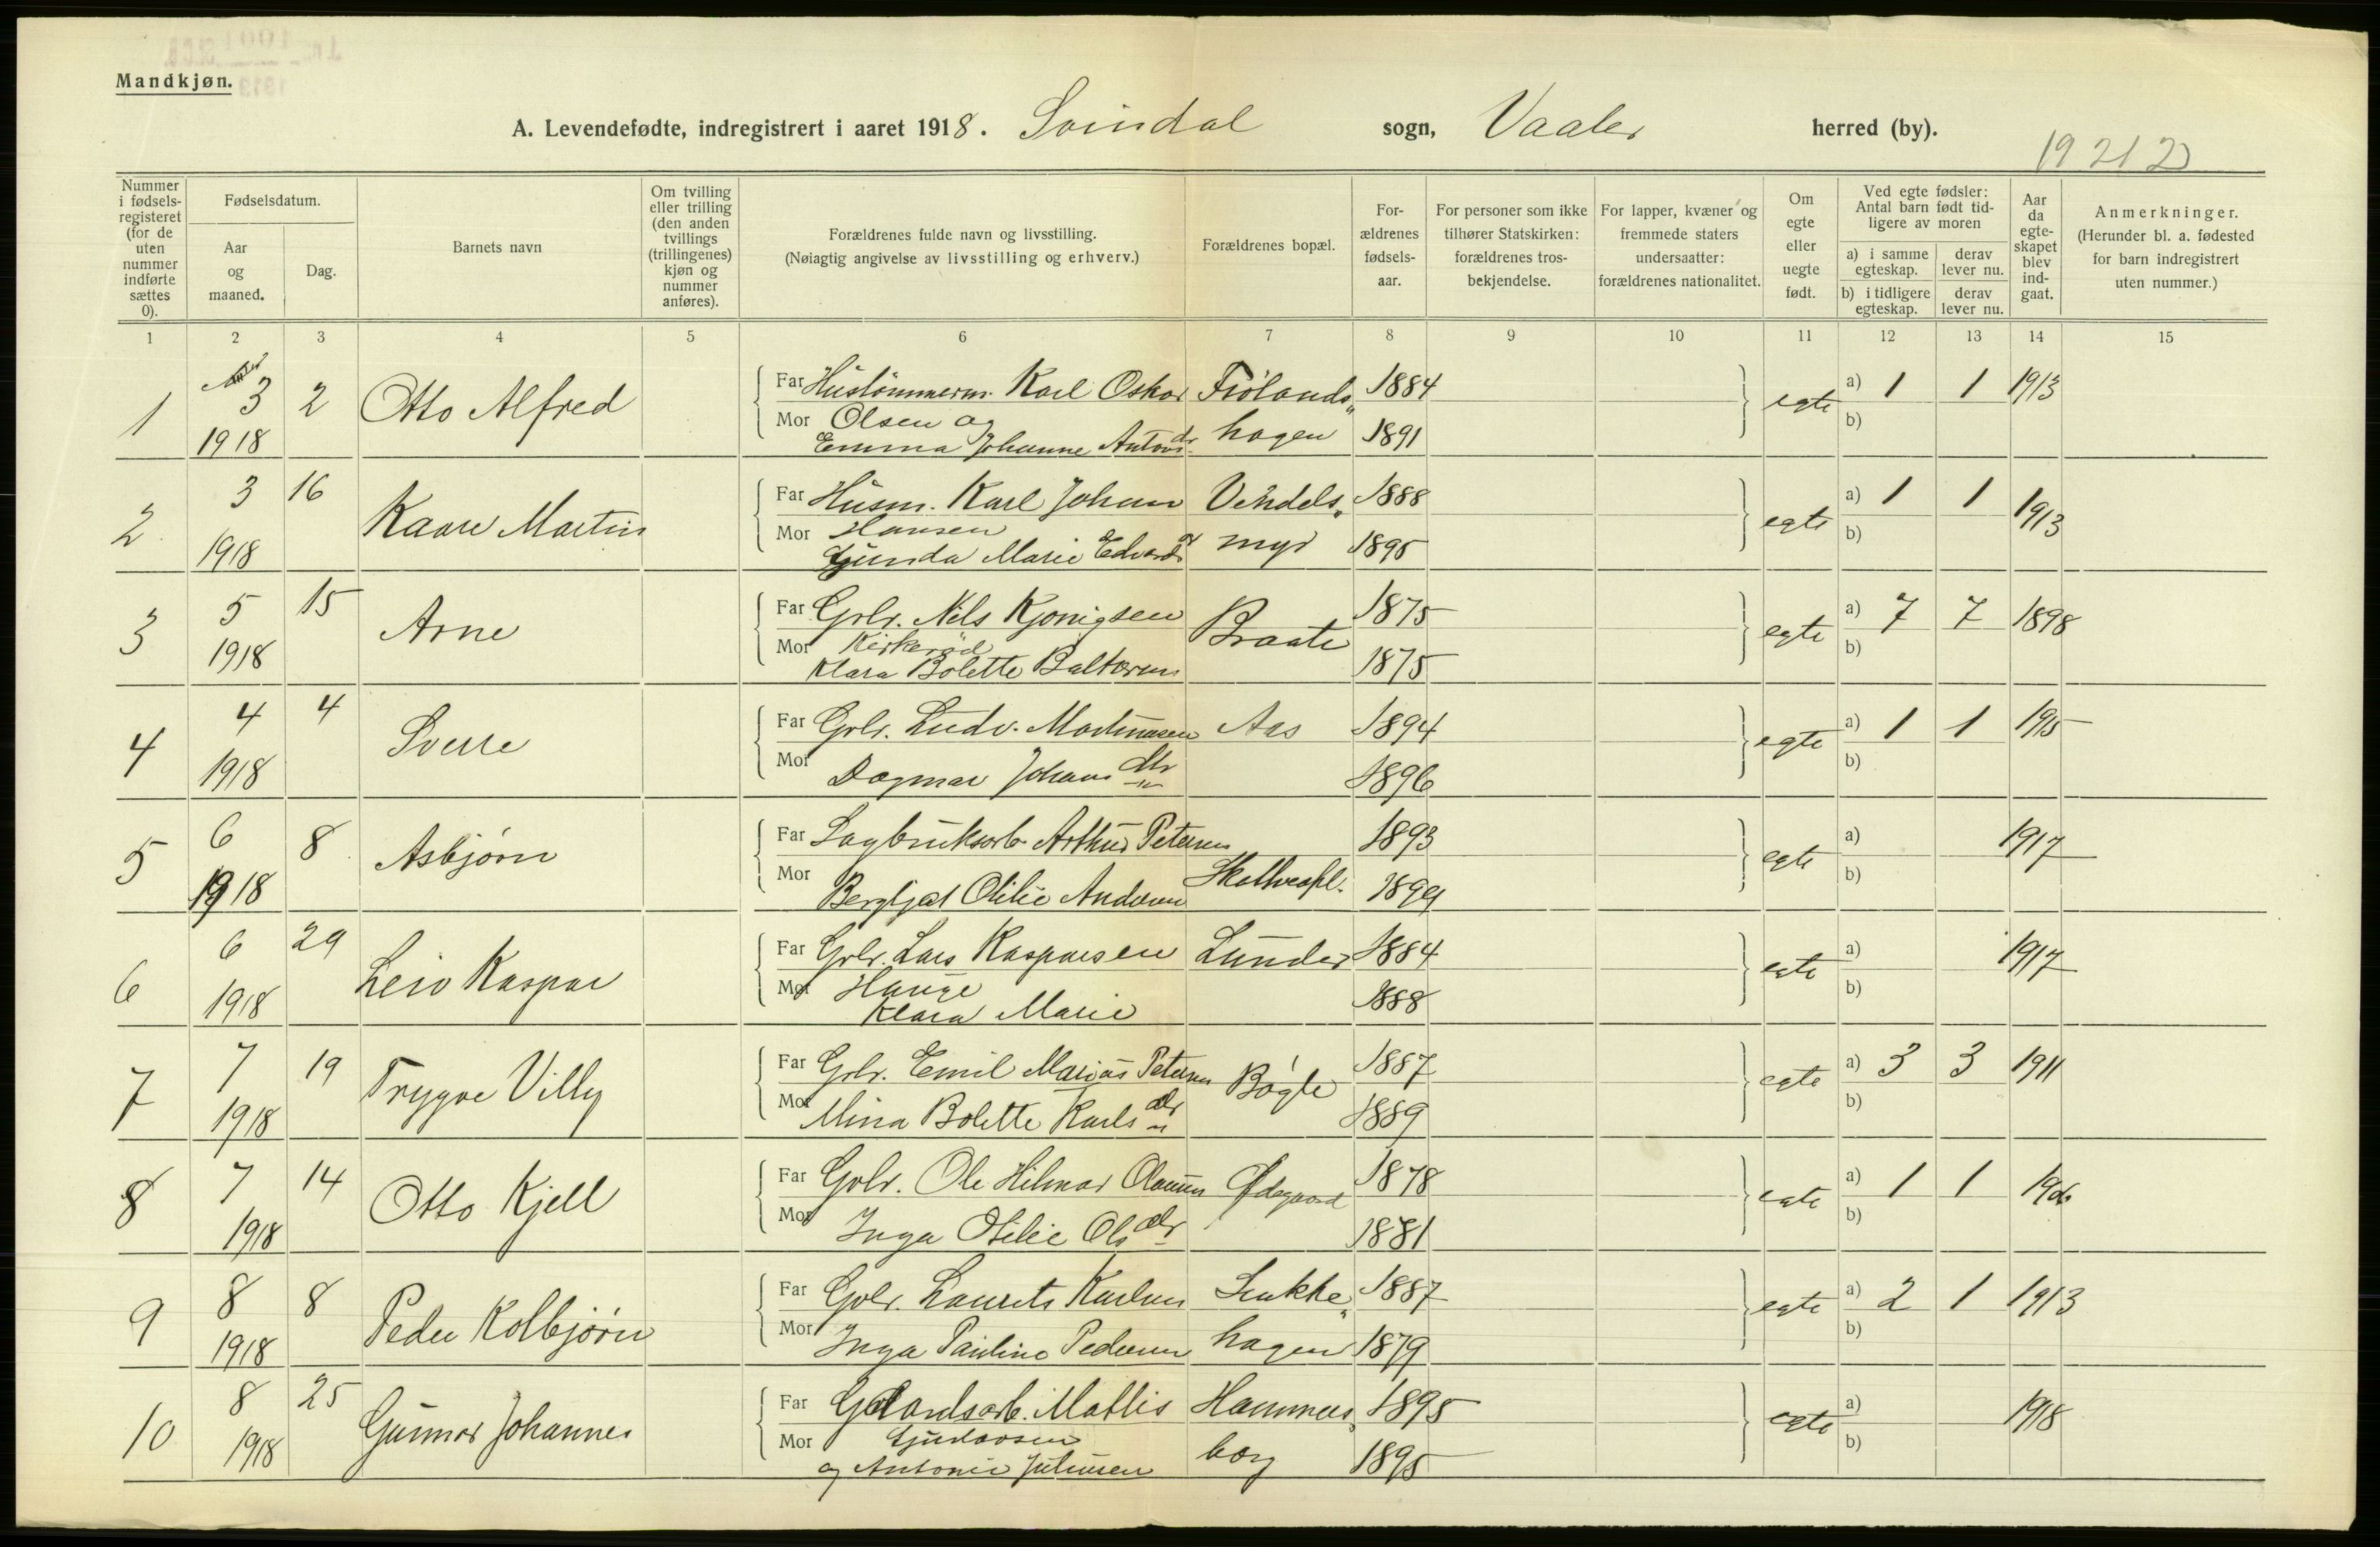 Mandkjøn.
A. Levendefødte, indregistrert i aaret 1918. Svindal sogn, Vaaler herred (by).
19 21 2
Nummer i fødsels-registeret (for de uten nummer indførte sættes 0).
Fødselsdatum.
Aar og maaned.
Dag.
Barnets navn
Om tvilling eller trilling (den anden tvillings (trillingenes) kjøn og nummer anføres).
Forældrenes fulde navn og livsstilling.
(Nøiagtig angivelse av livsstilling og erhverv.)
Forældrenes bopæl.
For-ældrenes fødsels-aar.
For personer som ikke tilhører Statskirken: forældrenes tros-bekjendelse.
For lapper, kvæner og fremmede staters undersaatter: forældrenes nationalitet.
Om egte eller uegte født.
Ved egte fødsler: Antal barn født tid-ligere av moren
a) i samme egteskap.
derav lever nu.
b) i tidligere egteskap.
derav lever nu.
Aar da egte-skapet blev ind-gaat.
Anmerkninger.
(Herunder bl. a. fødested for barn indregistrert uten nummer.)
1 2 3 4 5 6 7 8 9 10 11 12 13 14 15
1 3 1918 2 Otto Alfred
Far Hustømmerm. Karl Oskar Frølands„ 1884
Mor Olsen og
Emma Johanne Antonsdr. hagen 1891
egte a) 1 1 1913
b)
2 3 1918 16 Kaare Martin
Far Husm. Karl Johan Vendels„ 1888
Mor Hansen
Gunda Marie Edvardsdr myr 1895
egte a) 1 1 1913
b)
3 5 1918 15 Arne
Far Grbr. Nils Kjønigsen Braate 1875
Mor Kirkerød
Klara Bolette Baltersen 1875
egte a) 7 7 1898
b)
4 4 1918 4 Sverre
Far Grbr. Ludv. Martinusen Aas 1894
Mor Dagmar Johansdtr 1896
egte a) 1 1 1915
b)
5 6 1918 8 Asbjørn
Far Sagbruksarb. Arthur Petersen 1893
Mor Bergljot Otilie Andersen 1899
egte a) 1917
b)
6 6 1918 29 Leiv Kaspar
Far Grbr. Lars Kasparsen Lunder 1884
Mor Hauge
Klara Marie 1888
egte a) 1917
b)
7 7 1918 19 Trygve Villy
Far Grbr. Emil Marius Petersen Bøgle 1887
Mor Mina Bolette Karlsdtr 1889
egte a) 3 3 1911
b)
8 7 1918 14 Otto Kjell
Far Grbr. Ole Hilmar Olausen Ødegaard 1878
Mor Inga Otilie Olsdtr 1881
egte a) 1 1 1906
b)
9 8 1918 8 Peder Kolbjørn
Far Grbr. Laurits Karlsen 1887
Mor Inga Pauline Pedersen hagen 1879
egte a) 2 1 1913
b)
10 8 1918 25 Gunnar Johannes
Far Gaardsarb. Mathis Hammers„ 1895
Mor Gudavsen
og Antonie Julinsen borg 1895
egte a) 1918
b)